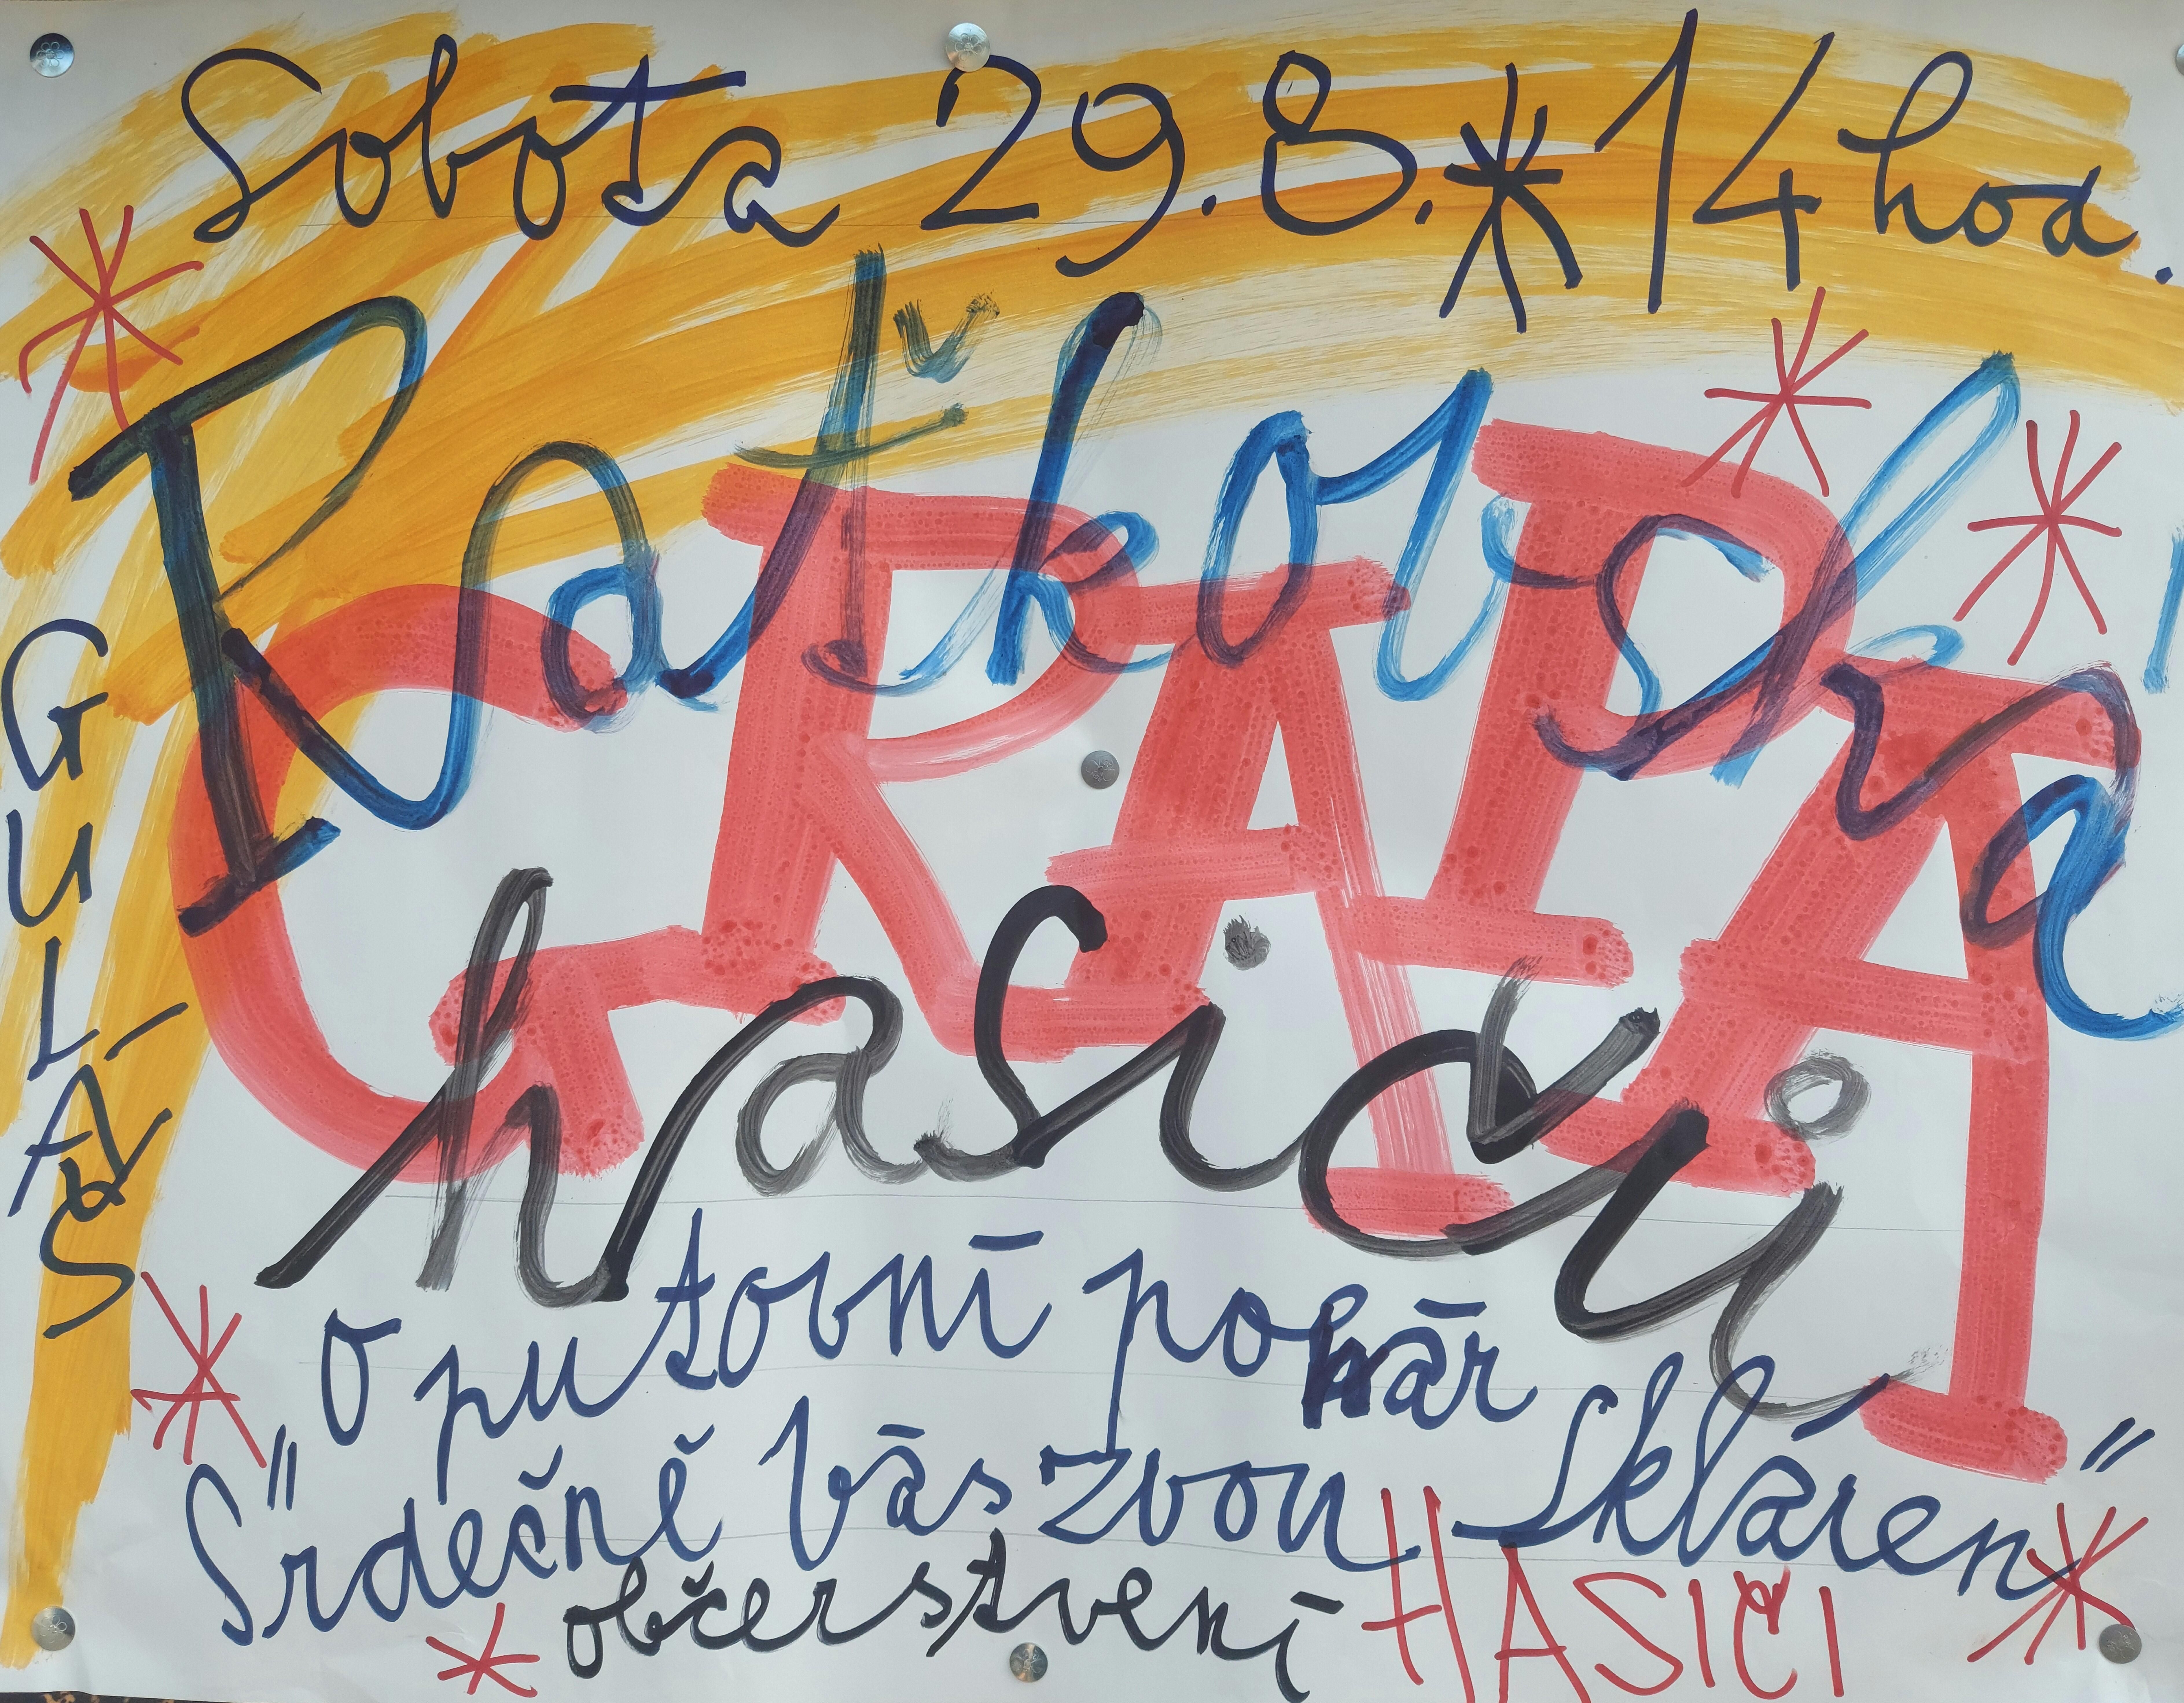 Sobota 29.8. * 14 hod.
Raťkovská
GRAPA
hasičů
GULÁŠ
"O putovní pohár Skláren"
Srdečně Vás zvou HASIČI
občerstvení